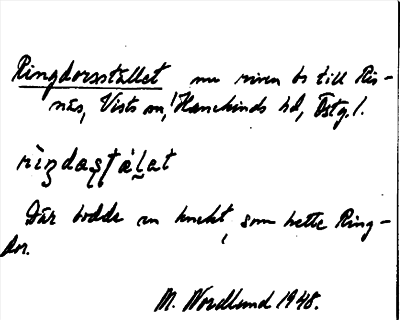 Ringdorsstället nu riven bs till Ris-
näs, Vists sn, Hanekinds hd, Östg. l.
rìŋdaʂʈàl̥at
Där bodde en knekt, som hette Ring-
dor.
M. Nordlund 1948.